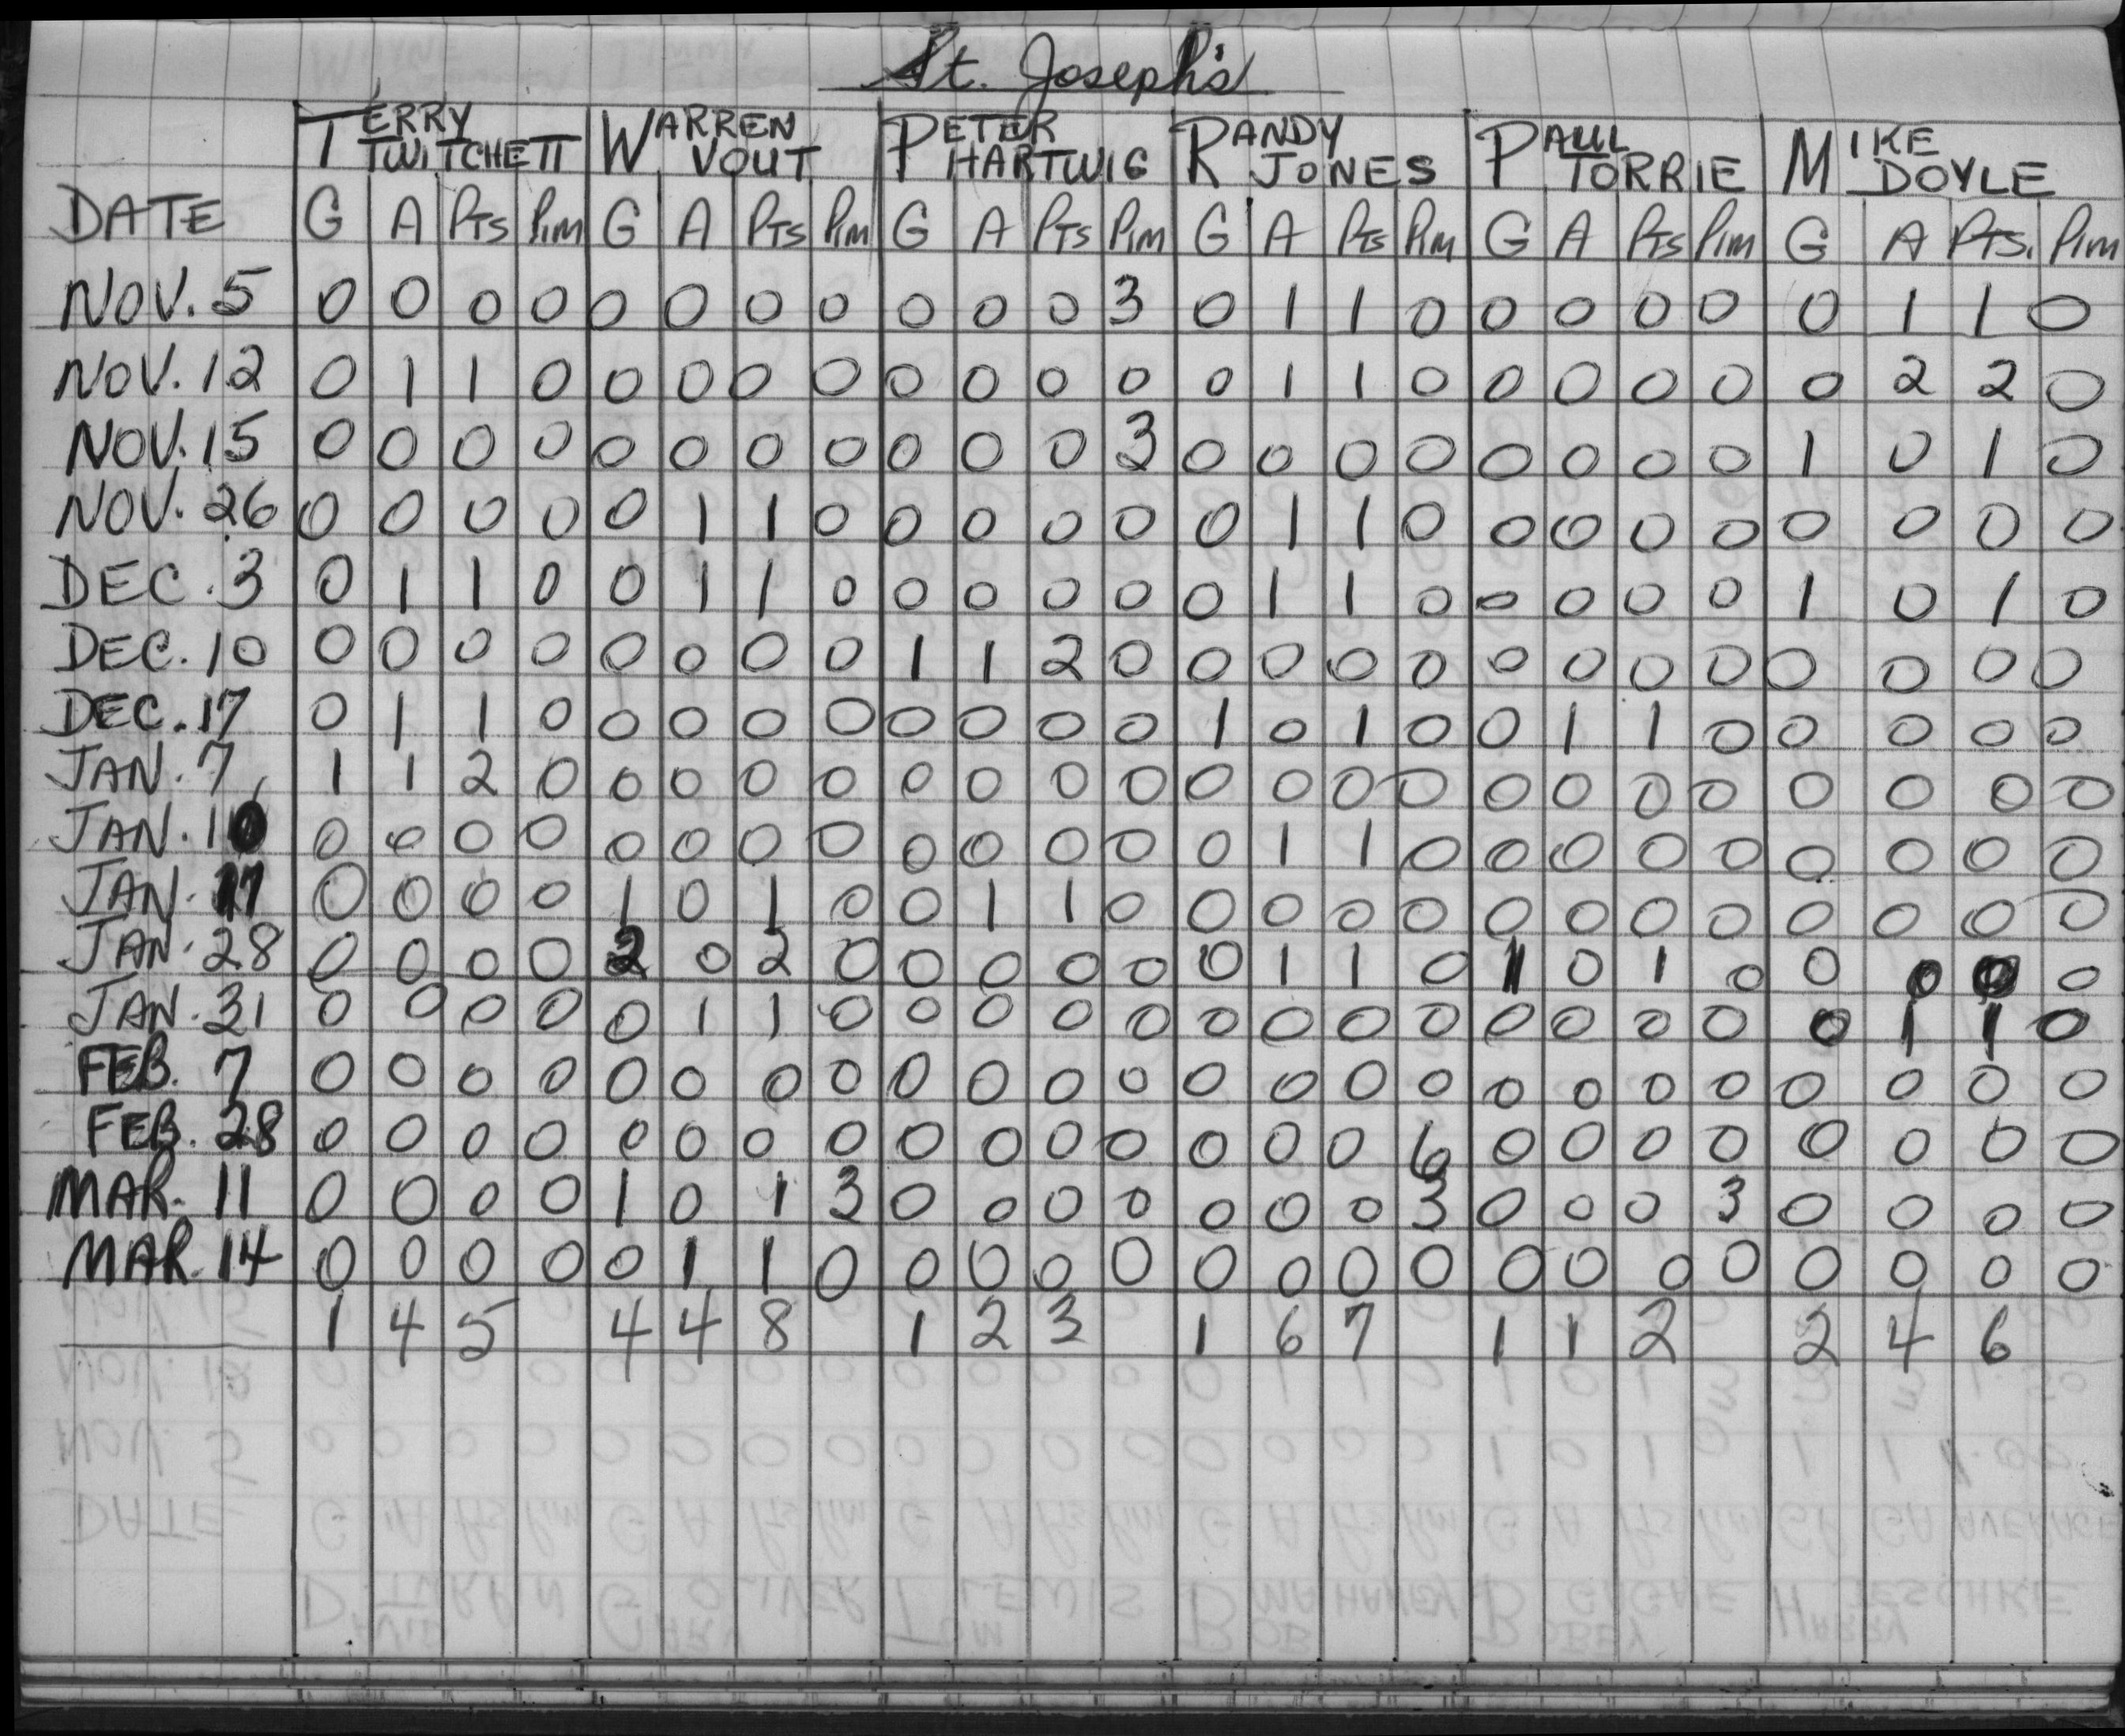 St. Joseph's
TERRY TWITCHETT WARREN VOUT PETER HARTWIG RANDY JONES PAUL TORRIE MIKE DOYLE
DATE G A Pts Pim G A Pts Pim G A Pts Pim G A Pts Pim G A Pts Pim G A Pts. Pim
NOV. 5 0 0 0 0 0 0 0 0 0 0 0 3 0 1 1 0 0 0 0 0 0 1 1 0
NOV. 12 0 1 1 0 0 0 0 0 0 0 0 0 0 1 1 0 0 0 0 0 0 2 2 0
NOV. 15 0 0 0 0 0 0 0 0 0 0 0 3 0 0 0 0 0 0 0 0 1 0 1 0
NOV. 26 0 0 0 0 0 1 1 0 0 0 0 0 0 1 1 0 0 0 0 0 0 0 0 0
DEC. 3 0 1 1 0 0 1 1 0 0 0 0 0 0 1 1 0 0 0 0 0 1 0 1 0
DEC. 10 0 0 0 0 0 0 0 0 1 1 2 0 0 0 0 0 0 0 0 0 0 0 0 0
DEC. 17 0 1 1 0 0 0 0 0 0 0 0 0 1 0 1 0 0 1 1 0 0 0 0 0
JAN. 7 1 1 2 0 0 0 0 0 0 0 0 0 0 0 0 0 0 0 0 0 0 0 0 0
JAN. 10 0 0 0 0 0 0 0 0 0 0 0 0 0 1 1 0 0 0 0 0 0 0 0 0
JAN. 17 0 0 0 0 1 0 1 0 0 1 1 0 0 0 0 0 0 0 0 0 0 0 0 0
JAN. 28 0 0 0 0 2 0 2 0 0 0 0 0 0 1 1 0 1 0 1 0 0 0 0 0
JAN. 31 0 0 0 0 0 1 1 0 0 0 0 0 0 0 0 0 0 0 0 0 0 1 1 0
FEB. 7 0 0 0 0 0 0 0 0 0 0 0 0 0 0 0 0 0 0 0 0 0 0 0 0
FEB. 28 0 0 0 0 0 0 0 0 0 0 0 0 0 0 0 6 0 0 0 0 0 0 0 0
MAR. 11 0 0 0 0 1 0 1 3 0 0 0 0 0 0 0 3 0 0 0 3 0 0 0 0
MAR. 14 0 0 0 0 0 1 1 0 0 0 0 0 0 0 0 0 0 0 0 0 0 0 0 0
1 4 5 4 4 8 1 2 3 1 6 7 1 1 2 2 4 6